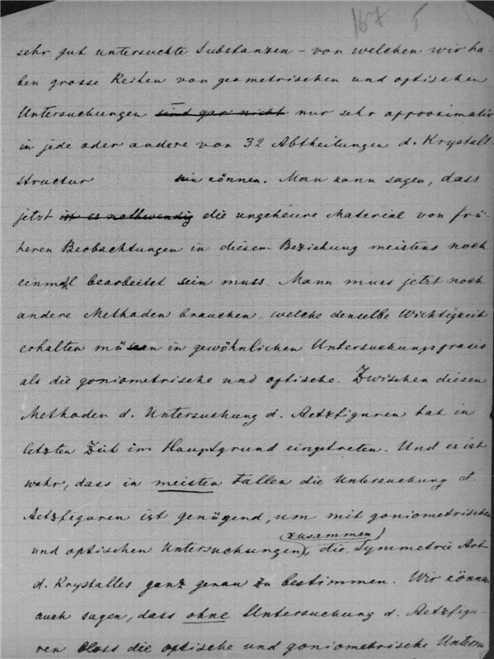 167 I
sehr gut untersuchte Substanzen – von welchen wir ha-
ben grosse Reihen von geometrischen und optischen
Untersuchungen sind gar nicht nur sehr approximativ
in jede oder andere von 32 Abtheilungen d. Krystall-
structur sein können. Man kann sagen, dass
jetzt ist es nothwendig die ungeheure Material von frü-
heren Beobachtungen in diesen Beziehung meistens noch
einmal bearbeitet sein muss. Mann muss jetzt noch
andere Methoden brauchen, welche denselbe Wichtigkeit
erhalten müssen in gewöhnlichen Untersuchungspraxis
als die goniometrische und optische. Zwischen diesen
Methoden d. Untersuchung d. Aetzfiguren hat in
letzten Zeit im Hauptgrund eingetreten. Und es ist
wahr, dass in meisten Fallen die Untersuchung d.
Aetzfiguren ist genügend, um mit goniometrischen
und optischen Untersuchungen (zusammen), die Symmetrie Art
d. Krystalles ganz genau zu bestimmen. Wir können
auch sagen, dass ohne Untersuchung d. Aetzfigu-
ren bloss die optische und goniometrische Untersu